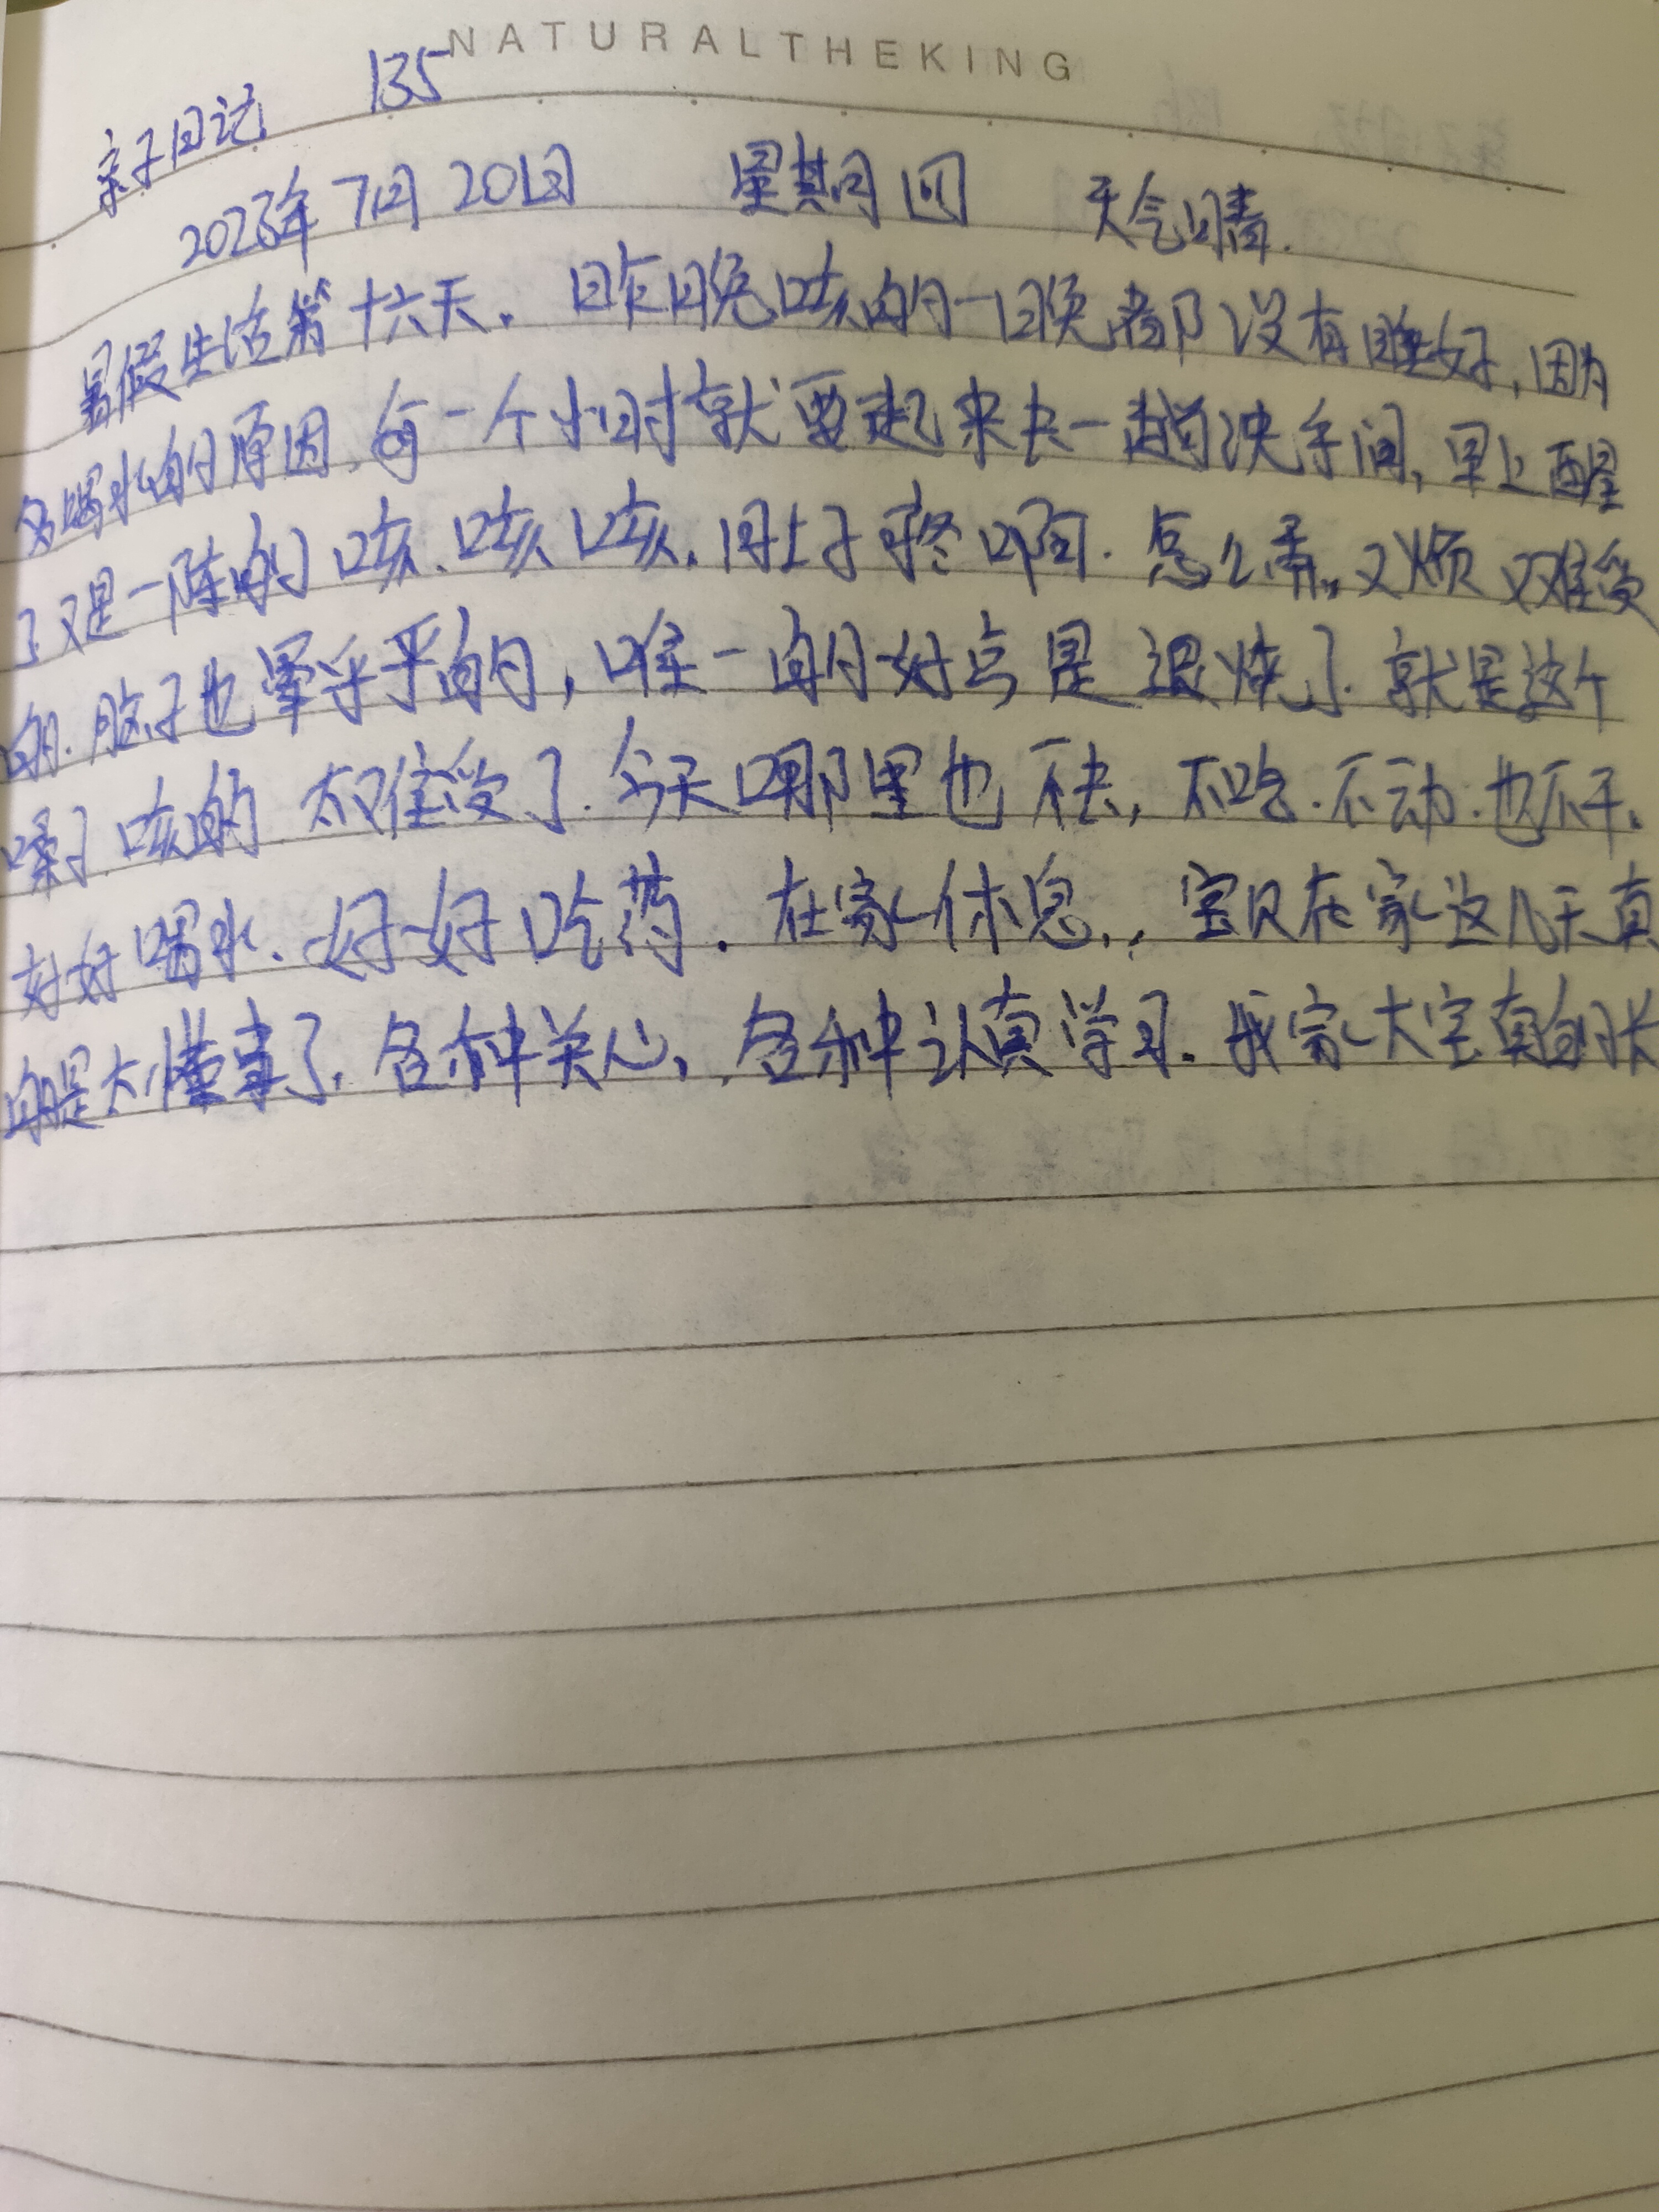 NATURALTHEKING
亲子日记 135
2023年7月20日 星期四 天气晴.
暑假生活第十六天。昨晚咳的一晚都没有睡好,因为
多喝水的原因,每一个小时就要起来去一趟洗手间,早上醒
了又是一阵的咳、咳咳,肚子疼啊.怎么弄,又烦又难受
的.脑子也晕乎乎的,唯一的好点是退烧了.就是这个
嗓子咳的太难受了.今天哪里也不去,不吃.不动.也不干.
好好喝水.好好吃药.在家休息..宝贝在家这几天真
的是太懂事了.各种关心,各种认真学习.我家大宝真的长